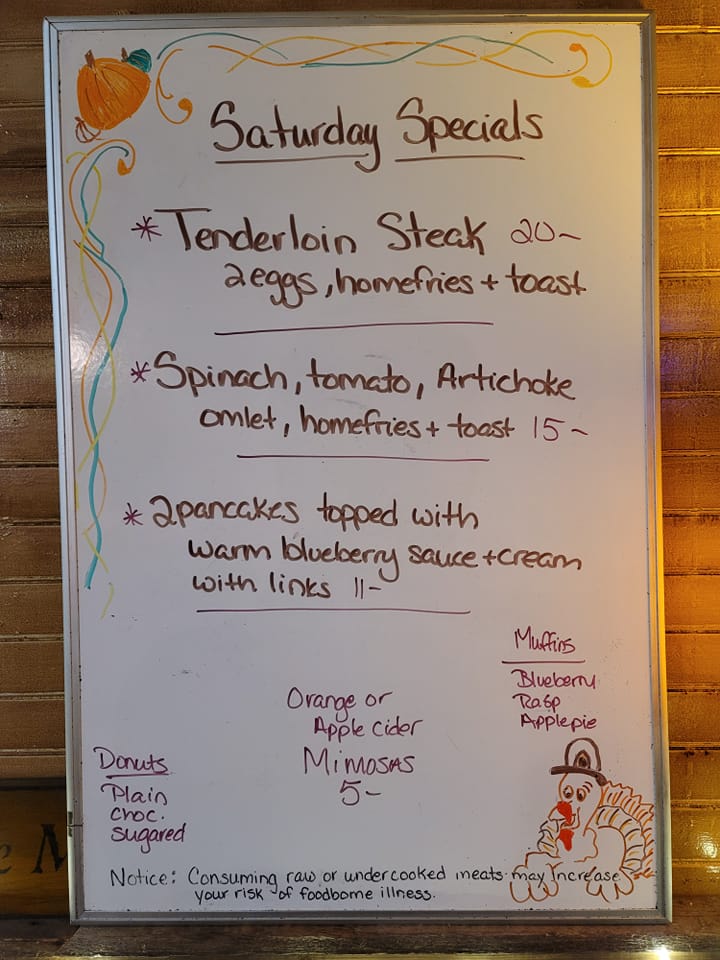 Saturday Specials
* Tenderloin Steak 20-
2 eggs, homefries + toast
* Spinach, tomato, Artichoke
omlet, homefries + toast 15-
* 2 pancakes topped with
warm blueberry sauce + cream
with links 11-
Muffins
Blueberry
Rasp
Applepie
Orange or
Apple Cider
Mimosas
5-
Donuts
Plain
choc.
sugared
Notice: Consuming raw or undercooked meats may increase
your risk of foodborne illness.